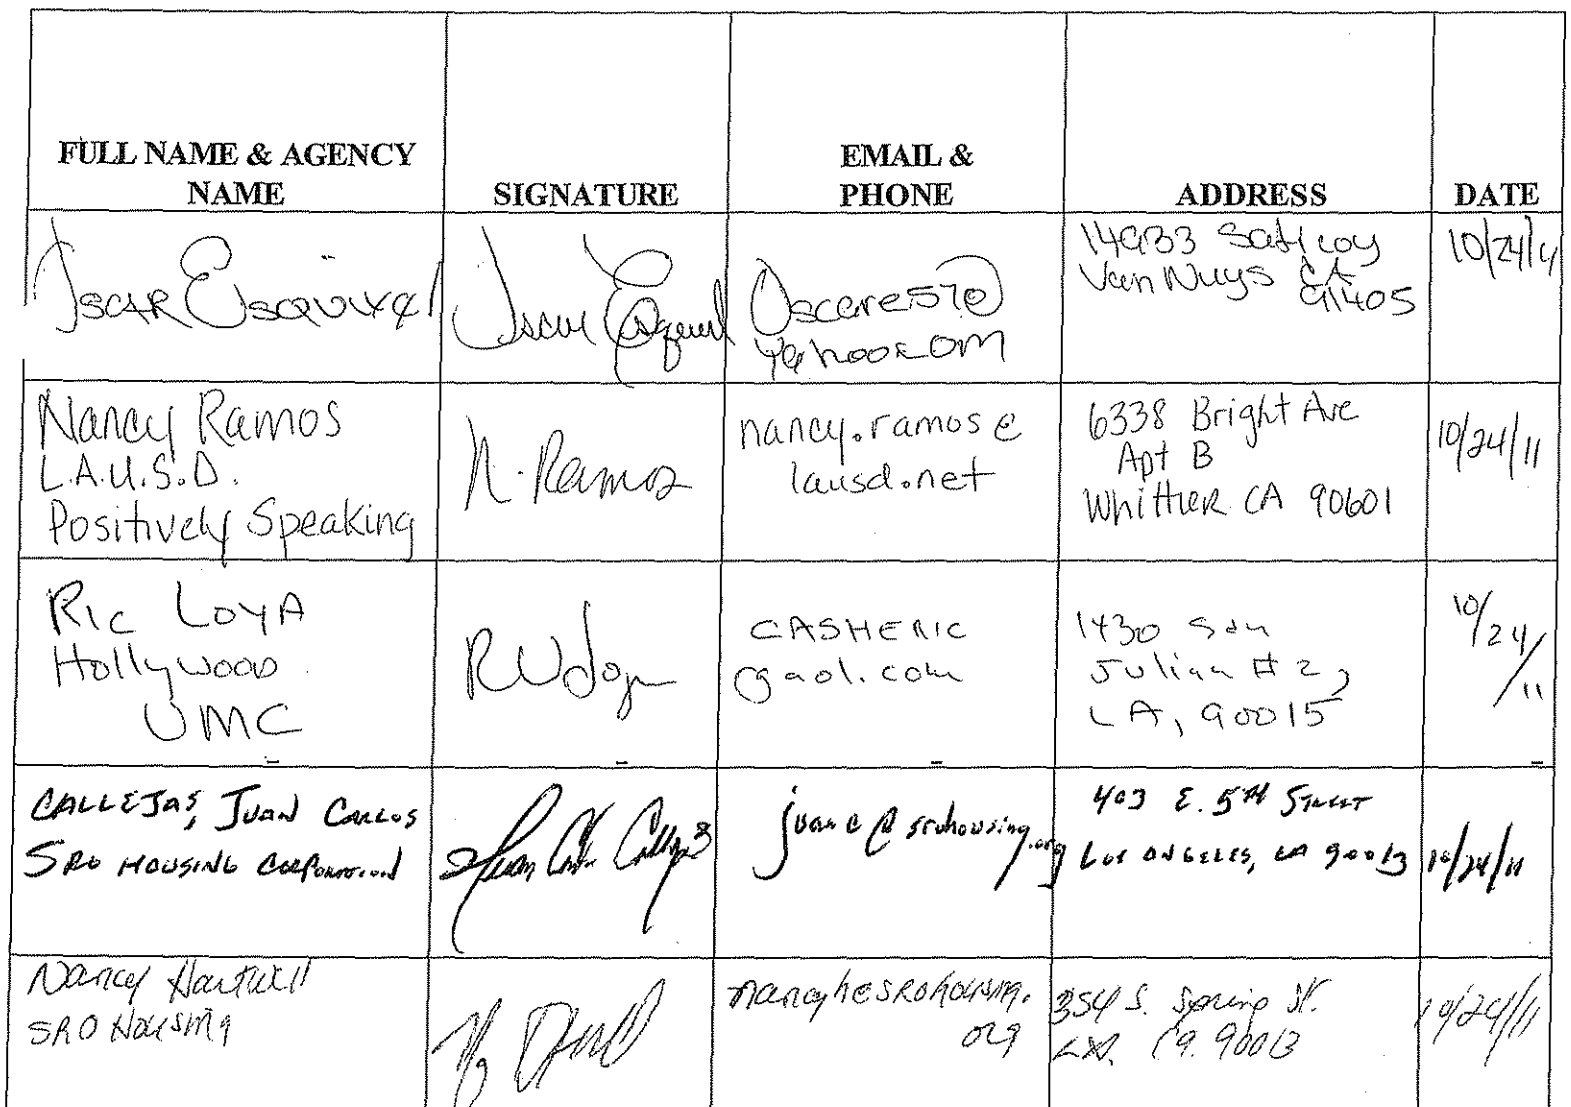 FULL NAME & AGENCY
NAME
SIGNATURE
EMAIL &
PHONE
ADDRESS
DATE
Oscar Esquivel
Oscar Esquivel
Oscares57@
yahoo.com
14933 Saticoy
Van Nuys CA
91405
10/24/11
Nancy Ramos
L.A.U.S.D.
Positively Speaking
N. Ramos
nancy.ramos@
lausd.net
6338 Bright Ave
Apt B
Whittier CA 90601
10/24/11
Ric Loya
Hollywood
UMC
CASHERIC
@aol.com
1430 San
Julian #2,
LA, 90015
10/
24/
11
CALLEJAS, JUAN CARLOS
SRO HOUSING CORPORATION
juanc@srohousing.org
403 E. 5TH STREET
LOS ANGELES, CA 90013
10/24/11
Nancy Hartwell
SRO Housing
nancyh@srohousing.
org
354 S. Spring St.
Ca. 90013
10/24/11